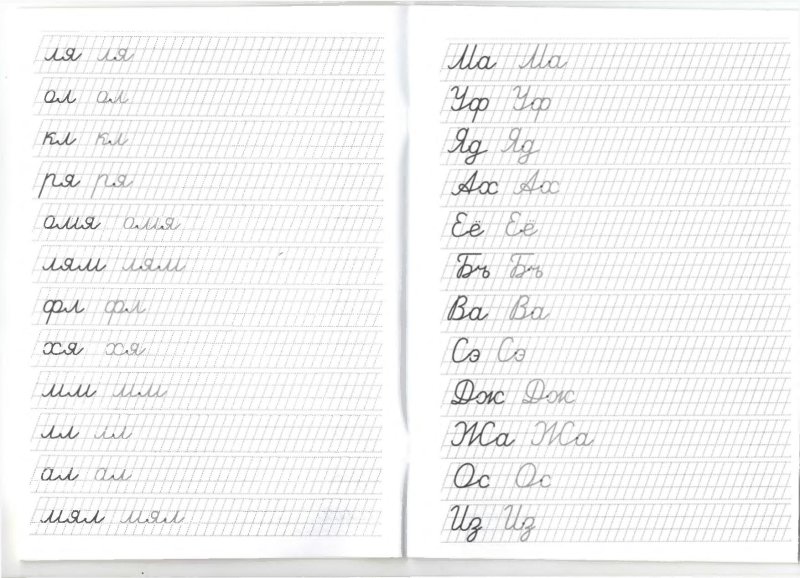 ля ля
ол ол
кл кл
ря ря
омя омя
лям лям
фл фл
хя хя
мм мм
лл лл
ал ал
мял мял
Ма Ма
Уф Уф
Яд Яд
Ах Ах
Её Её
Бъ Бъ
Ва Ва
Сэ Сэ
Дж Дж
Жа Жа
Ос Ос
Из Из